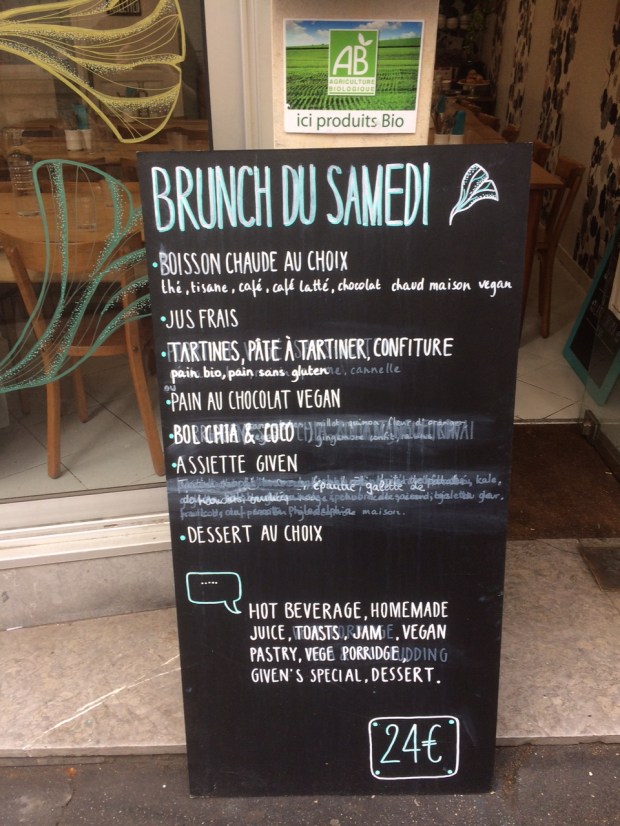 AB
AGRICULTURE
BIOLOGIQUE
ici produits Bio
BRUNCH DU SAMEDI
• BOISSON CHAUDE AU CHOIX
thé, tisane, café, café latté, chocolat chaud maison vegan
• JUS FRAIS
• TARTINES, PÂTE À TARTINER, CONFITURE
pain bio, pain sans gluten cannelle
ou
• PAIN AU CHOCOLAT VEGAN
• BOL CHIA & COCO
• ASSIETTE GIVEN
épautre, galette de
maison.
• DESSERT AU CHOIX
.....
HOT BEVERAGE, HOMEMADE
JUICE, TOASTS, JAM, VEGAN
PASTRY, VEGE PORRIDGE, PUDDING
GIVEN'S SPECIAL, DESSERT.
24€